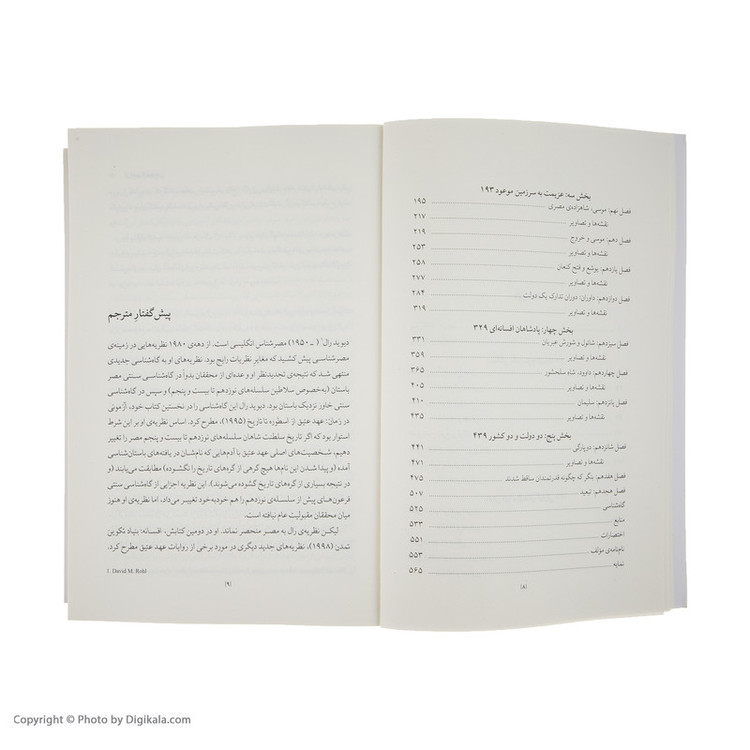 بخش سه: عزیمت به سرزمین موعود ۱۹۳
فصل نهم: موسی، شاهزاده‌ی مصری ۱۹۵
نقشه‌ها و تصاویر ۲۱۷
فصل دهم: موسی و خروج ۲۱۹
نقشه‌ها و تصاویر ۲۵۳
فصل یازدهم: یوشع و فتح کنعان ۲۵۸
نقشه‌ها و تصاویر ۲۷۷
فصل دوازدهم: داوران: دوران تدارک یک دولت ۲۸۴
نقشه‌ها و تصاویر ۳۱۹
بخش چهار: پادشاهان افسانه‌ای ۳۲۹
فصل سیزدهم: شائول و شورش عبریان ۳۳۱
نقشه‌ها و تصاویر ۳۵۹
فصل چهاردهم: داوود، شاه سلحشور ۳۶۵
نقشه‌ها و تصاویر ۲۰۵
فصل پانزدهم: سلیمان ۲۱۰
نقشه‌ها و تصاویر ۲۳۵
بخش پنج: دو دولت و دو کشور ۴۳۹
فصل شانزدهم: دوپارگی ۴۴۱
نقشه‌ها و تصاویر ۴۷۱
فصل هفدهم: بنگر که چگونه قدرتمندان ساقط شدند ۴۷۵
فصل هجدهم: تبعید ۵۰۷
گاه‌شناسی ۵۲۵
منابع ۵۳۳
اختصارات ۵۵۱
نام‌نامه‌ی مؤلف ۵۵۳
نمایه ۵۶۵
[۸]
پیش‌گفتار مترجم
دیوید رال¹ (ـ ۱۹۵۰) مصرشناس انگلیسی است. از دهه‌ی ۱۹۸۰ نظریه‌هایی در زمینه‌ی
مصرشناسی پیش کشید که مغایر نظریات رایج بود. نظریه‌های او به گاه‌شناسی جدیدی
منتهی شد که نتیجه‌ی تجدیدنظر او و عده‌ای از محققان بدواً در گاه‌شناسی سنتی مصر
باستان (به‌خصوص سلاطین سلسله‌های نوزدهم تا بیست و پنجم) و سپس در گاه‌شناسی
سنتی خاور نزدیک باستان بود. دیوید رال این گاه‌شناسی را در نخستین کتاب خود، آزمونی
در زمان: عهد عتیق از اسطوره تا تاریخ (۱۹۹۵)، مطرح کرد. اساس نظریه‌ی او بر این شرط
استوار بود که اگر تاریخ سلطنت شاهان سلسله‌های نوزدهم تا بیست و پنجم مصر را تغییر
دهیم، شخصیت‌های اصلی عهد عتیق با آدم‌هایی که نام‌شان در یافته‌های باستان‌شناسی
آمده (و پیدا شدن این نام‌ها هیچ گرهی از گره‌های تاریخ را نگشوده) مطابقت می‌یابند (و
در نتیجه بسیاری از گره‌های تاریخ گشوده می‌شوند). این نظریه اجزایی از گاه‌شناسی سنتی
فرعون‌های پیش از سلسله‌ی نوزدهم را هم خودبه‌خود تغییر می‌داد، اما نظریه‌ی او هنوز
میان محققان مقبولیت عام نیافته است.
لیکن نظریه‌ی رال به مصر منحصر نماند. او در دومین کتابش، افسانه: بنیاد تکوین
تمدن (۱۹۹۸)، نظریه‌های جدید دیگری در مورد برخی از روایات عهد عتیق مطرح کرد.
1. David M. Rohl
[۹]
Copyright © Photo by Digikala.com